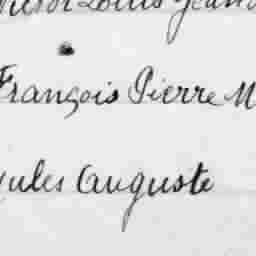 Victor Louis Jean
François Pierre M
Jules Auguste